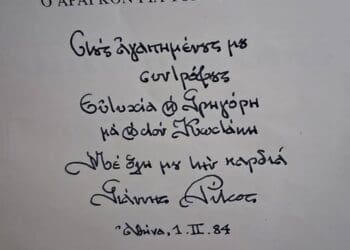 Ο ΑΡΑΓΚΟΝ ΓΙΑ
Στούς ἀγαπημένους μου
συντρόφους
Εὐτυχία & Γρηγόρη
μὰ & στὸν Κωστάκη
Μὲ ὅλη μου τὴν καρδιά
Γιάννης Ρίτσος
Ἀθήνα, 1.II.84